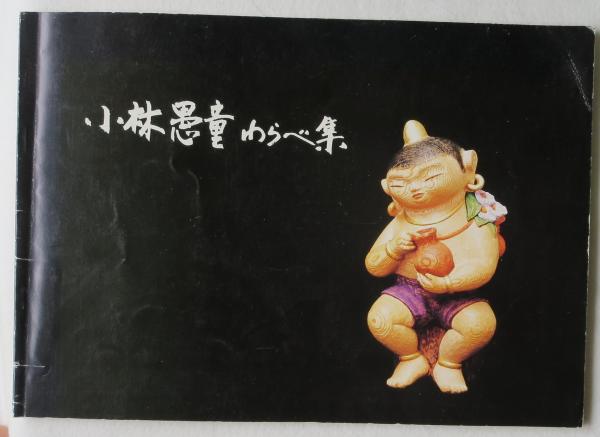 小林愚童わらべ集